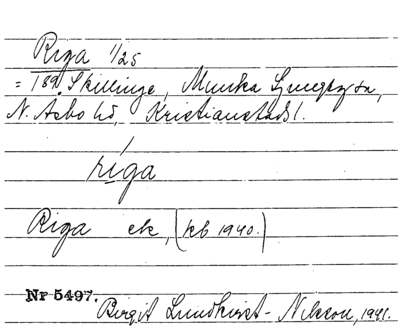 Riga 1/25
= 18a. Skillinge, Munka Ljungby sn,
N. Åsbo hd, Kristianstads l.
ríga
Riga ek, (kb 1940.)
Nr 5497.
Birgit Lundkvist-Nilsson, 1941.